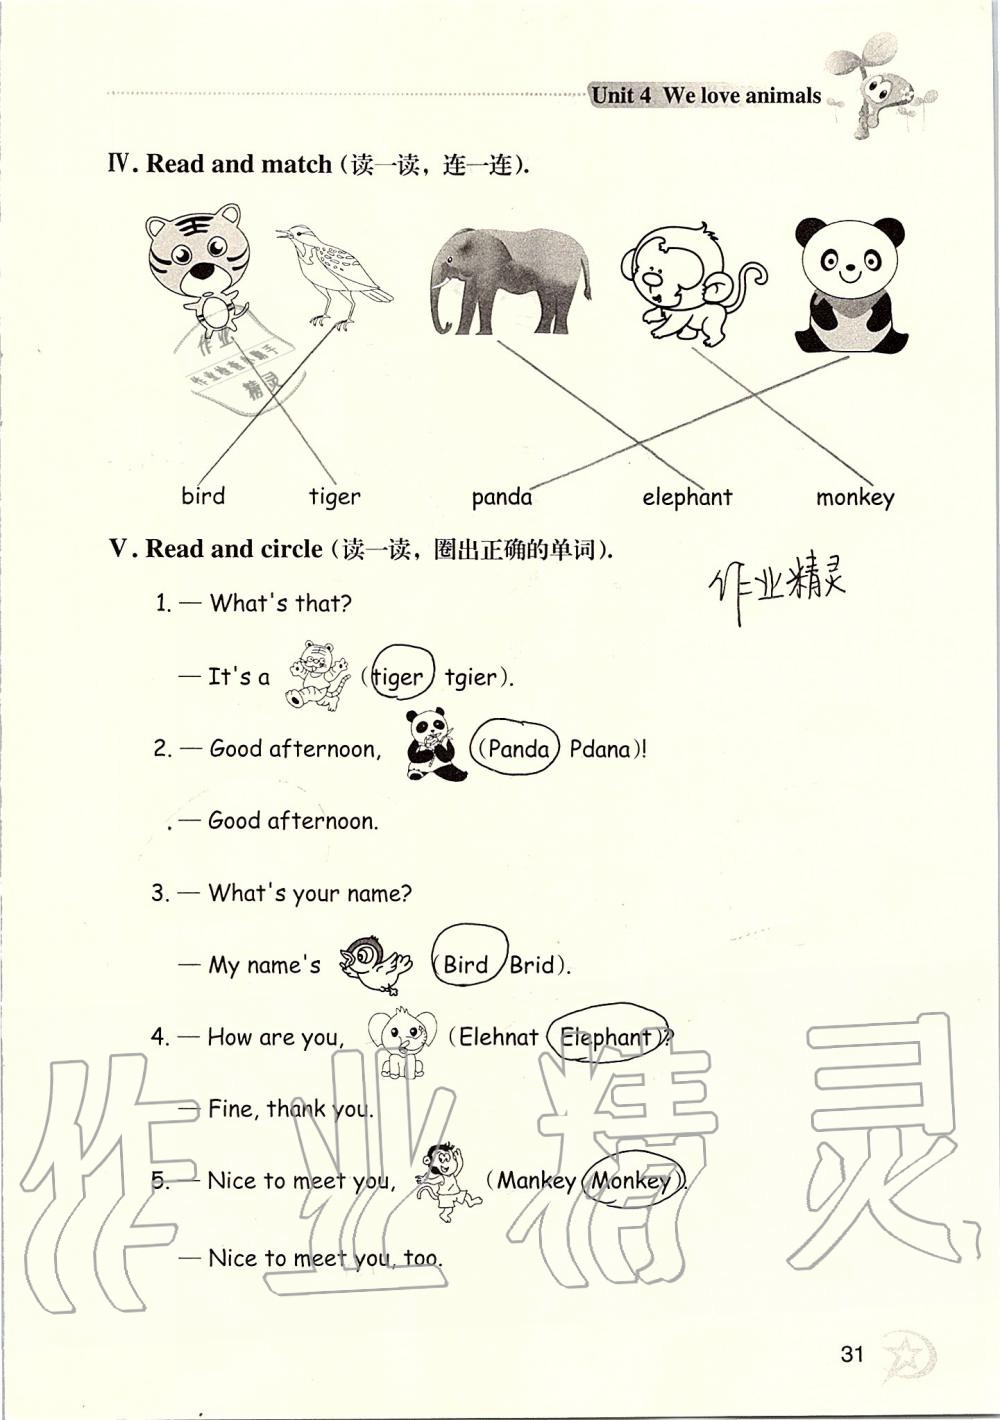 Unit 4 We love animals
Ⅳ. Read and match (读一读，连一连).
作业
作业检查小助手
精灵
bird tiger panda elephant monkey
Ⅴ. Read and circle (读一读，圈出正确的单词).
作业精灵
1. — What's that?
— It's a (tiger tgier).
2. — Good afternoon, (Panda Pdana)!
— Good afternoon.
3. — What's your name?
— My name's (Bird Brid).
4. — How are you, (Elehnat Elephant)?
— Fine, thank you.
5. — Nice to meet you, (Mankey Monkey).
— Nice to meet you, too.
作业精灵
31